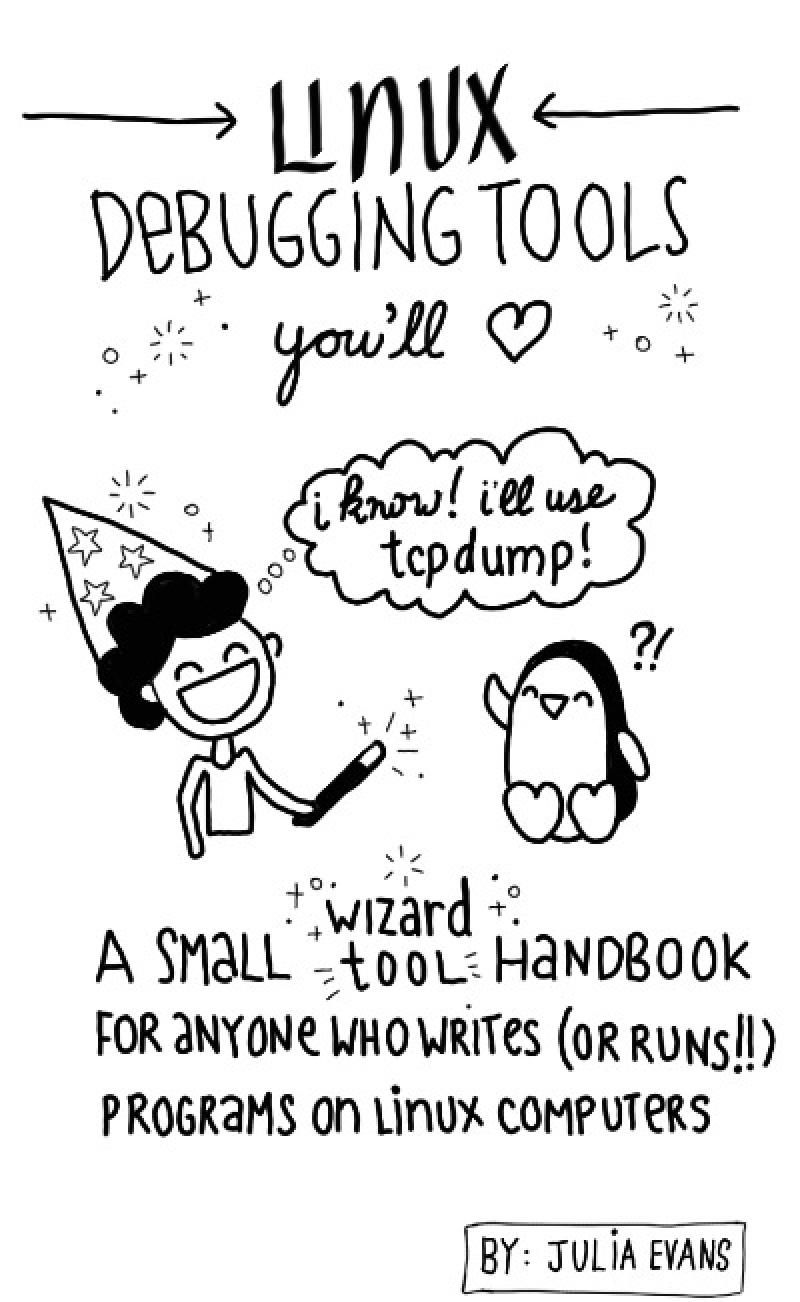 LINUX
DEBUGGING TOOLS
you'll ♡
i know! i'll use
tcpdump!
?!
wizard
A SMALL tool HANDBOOK
FOR ANYONE WHO WRITES (OR RUNS!!)
PROGRAMS ON LINUX COMPUTERS
BY: JULIA EVANS